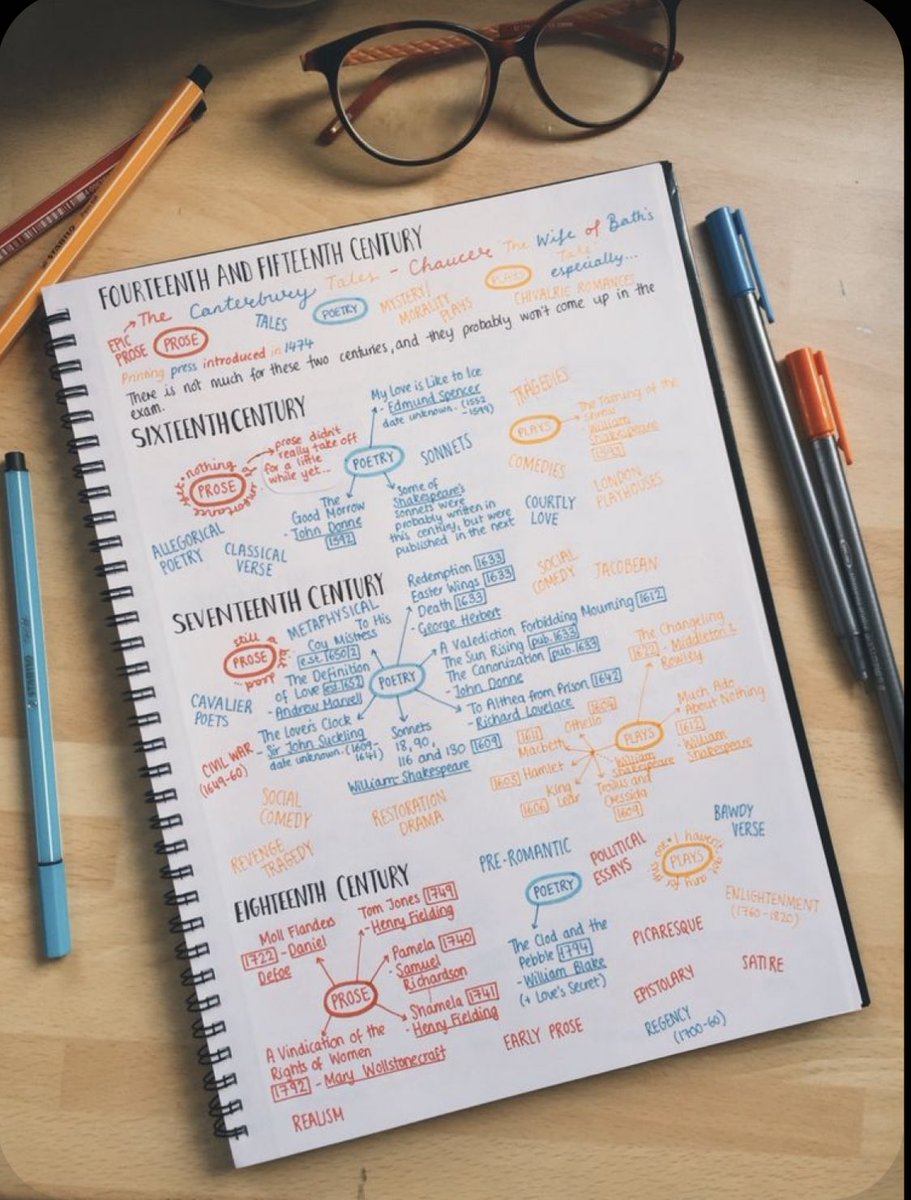 FOURTEENTH AND FIFTEENTH CENTURY
The Canterbury Tales - Chaucer 'The Wife of Bath's
Tale'
especially...
EPIC
PROSE
PROSE
TALES
POETRY
MYSTERY/
MORALITY
PLAYS
PLAYS
CHIVALRIC ROMANCES
Printing press introduced in 1474
There is not much for these two centuries, and they probably won't come up in the
exam.
SIXTEENTH CENTURY
My Love is Like to Ice
- Edmund Spencer
date unknown. (1552
-1599)
TRAGEDIES
PLAYS
The Taming of the
Shrew
- William
Shakespeare
nothing
PROSE
importance
yet
prose didn't
really take off
for a little
while yet...
POETRY
SONNETS
COMEDIES
LONDON
PLAYHOUSES
The
Good Morrow
- John Donne
1592
Some of
Shakespeare's
sonnets were
probably written in
this century, but were
published in the next
COURTLY
LOVE
ALLEGORICAL
POETRY
CLASSICAL
VERSE
SEVENTEENTH CENTURY
Redemption 1633
Easter Wings 1633
Death 1633
- George Herbert
SOCIAL
COMEDY
JACOBEAN
still a
PROSE
METAPHYSICAL
To His
Coy Mistress
est. 1650/2
The Definition
of Love est. 1652
- Andrew Marvel
POETRY
A Valediction Forbidding Mourning 1612
The Sun Rising pub. 1633
The Canonization pub. 1633
- John Donne
The Changeling
1622 - Middleton &
Rowley
CAVALIER
POETS
To Althea from Prison 1642
- Richard Lovelace
Much Ado
About Nothing
1612
- William
Shakespeare
The Lover's Clock
- Sir John Suckling
date unknown - (1609-
1641)
Sonnets
18, 90,
116 and 130 1609
William Shakespeare
PLAYS
1604
Othello
1611
Macbeth
1603 Hamlet
King
Lear
1606
William
Shakespeare
Troilus and
Cressida
1609
CIVIL WAR
(1649-60)
SOCIAL
COMEDY
RESTORATION
DRAMA
REVENGE
TRAGEDY
EIGHTEENTH CENTURY
PRE-ROMANTIC
POLITICAL
ESSAYS
PLAYS
I haven't got
any for
BAWDY
VERSE
Moll Flanders
1722 - Daniel
Defoe
Tom Jones 1749
- Henry Fielding
Pamela 1740
- Samuel
Richardson
Shamela 1741
- Henry Fielding
PROSE
A Vindication of the
Rights of Women
1792 - Mary Wollstonecraft
REALISM
POETRY
The Clod and the
Pebble 1794
- William Blake
(+ Love's Secret)
EARLY PROSE
PICARESQUE
EPISTOLARY
REGENCY
(1700-60)
ENLIGHTENMENT
(1760-1820)
SATIRE